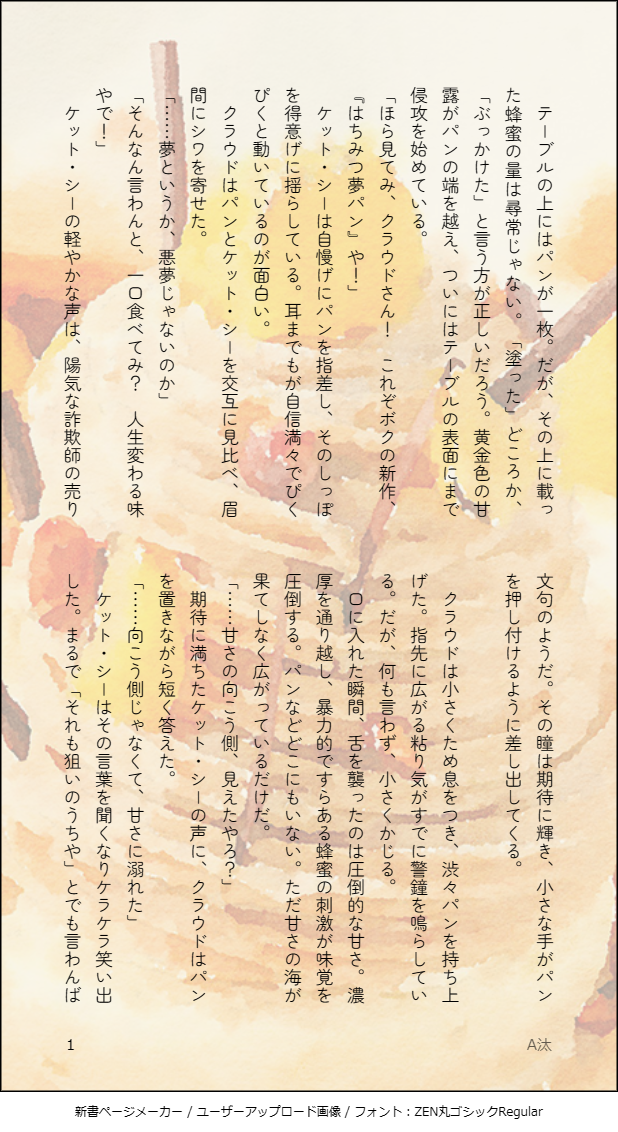 テーブルの上にはパンが一枚。だが、その上に載っ
た蜂蜜の量は尋常じゃない。「塗った」どころか、
「ぶっかけた」と言う方が正しいだろう。黄金色の甘
露がパンの端を越え、ついにはテーブルの表面にまで
侵攻を始めている。
「ほら見てみ、クラウドさん！　これぞボクの新作、
『はちみつ夢パン』や！」
　ケット・シーは自慢げにパンを指差し、そのしっぽ
を得意げに揺らしている。耳までもが自信満々でぴく
ぴくと動いているのが面白い。
　クラウドはパンとケット・シーを交互に見比べ、眉
間にシワを寄せた。
「……夢というか、悪夢じゃないのか」
「そんなん言わんと、一口食べてみ？　人生変わる味
やで！」
　ケット・シーの軽やかな声は、陽気な詐欺師の売り
文句のようだ。その瞳は期待に輝き、小さな手がパン
を押し付けるように差し出してくる。
　クラウドは小さくため息をつき、渋々パンを持ち上
げた。指先に広がる粘り気がすでに警鐘を鳴らしてい
る。だが、何も言わず、小さくかじる。
　口に入れた瞬間、舌を襲ったのは圧倒的な甘さ。濃
厚を通り越し、暴力的ですらある蜂蜜の刺激が味覚を
圧倒する。パンなどどこにもいない。ただ甘さの海が
果てしなく広がっているだけだ。
「……甘さの向こう側、見えたやろ？」
　期待に満ちたケット・シーの声に、クラウドはパン
を置きながら短く答えた。
「……向こう側じゃなくて、甘さに溺れた」
　ケット・シーはその言葉を聞くなりケラケラ笑い出
した。まるで「それも狙いのうちや」とでも言わんば
1
A汰
新書ページメーカー / ユーザーアップロード画像 / フォント：ZEN丸ゴシックRegular